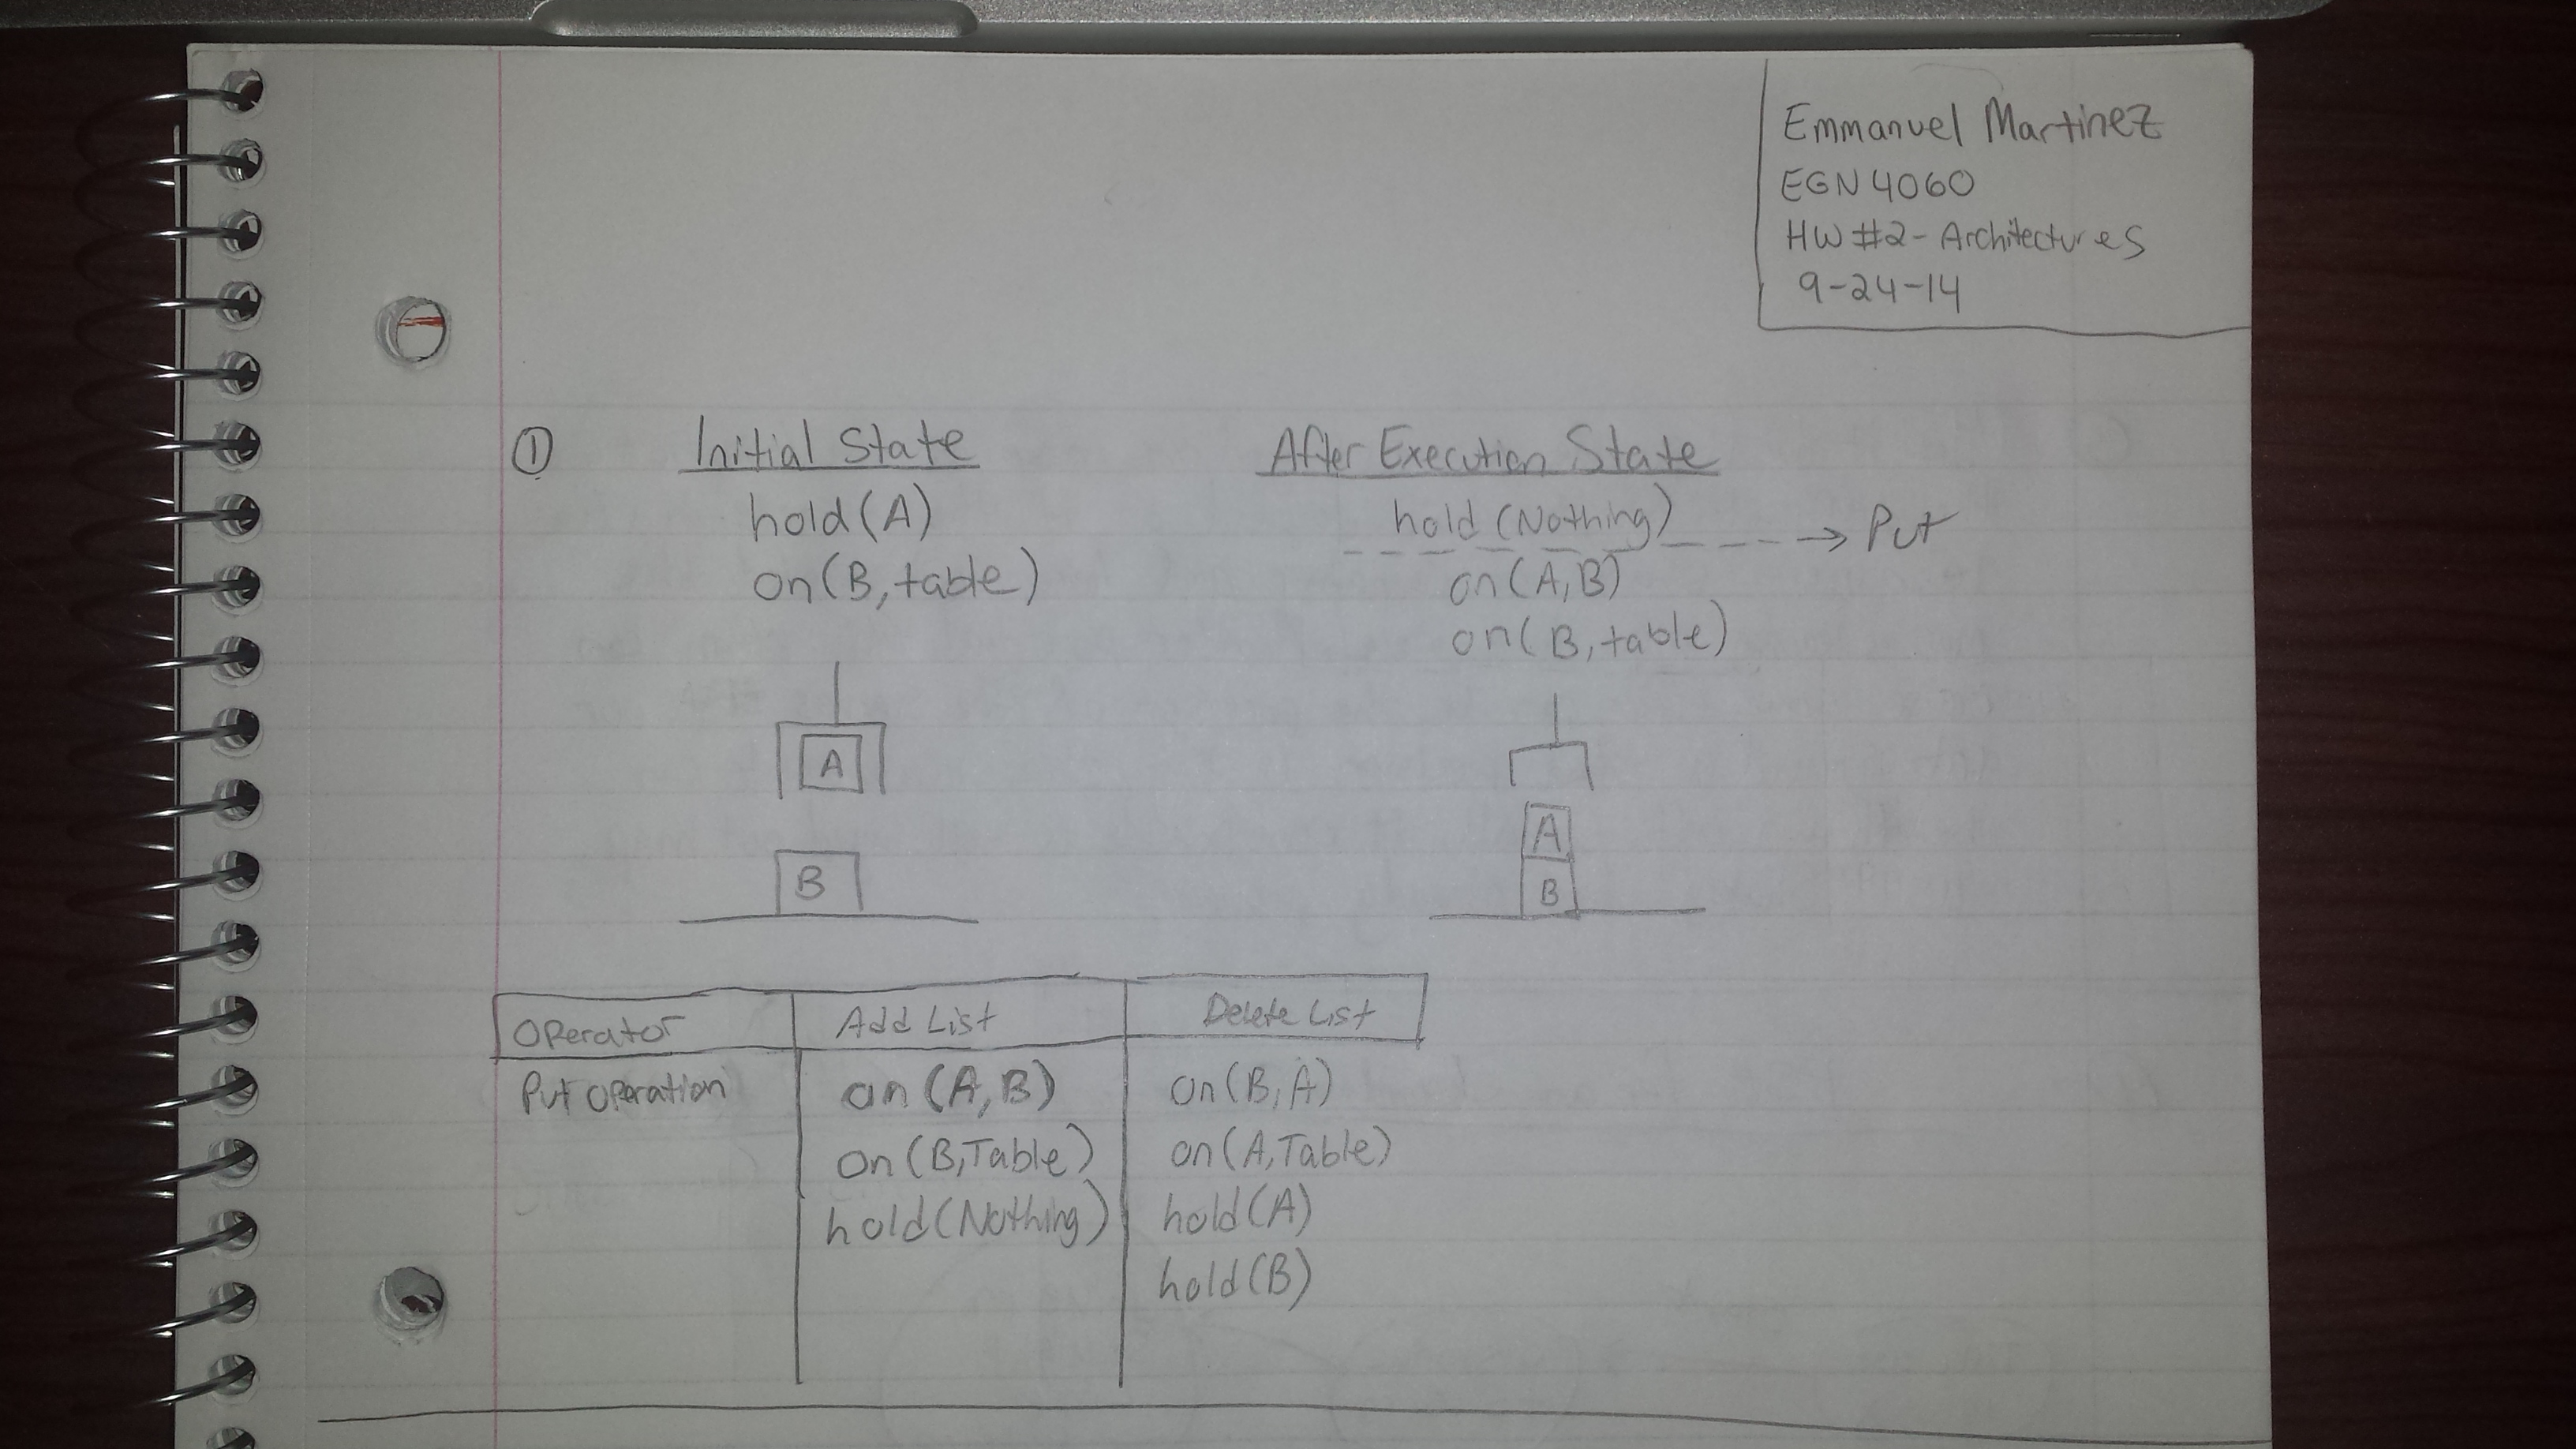 Emmanuel Martinez
EGN 4060
HW #2 - Architectures
9-24-14
① Initial State
hold(A)
on(B, table)
After Execution State
hold (Nothing) → Put
on(A,B)
on(B, table)
A
B
A
B
Operator Add List Delete List
Put operation on (A,B) on (B,A)
on (B,Table) on (A,Table)
hold (Nothing) hold (A)
hold (B)